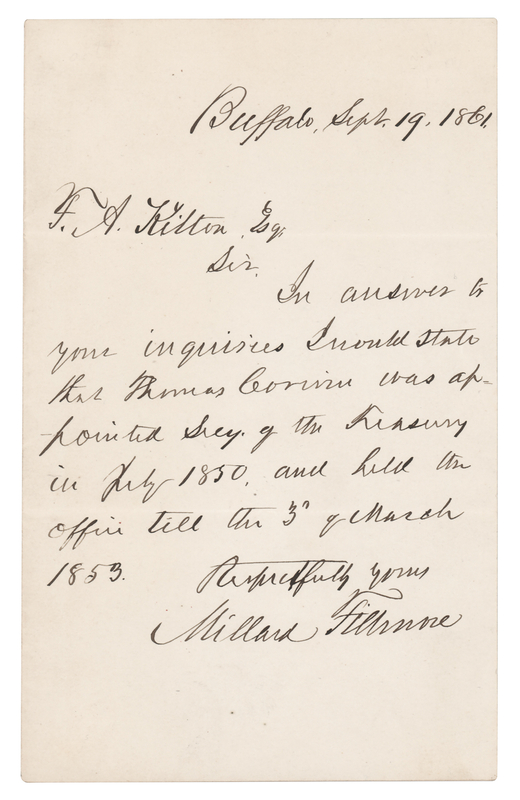 Buffalo, Sept. 19. 1861.
F. A. Kilton, Esq.
Sir.
In answer to
your inquiries I would state
that Thomas Corwin was ap=
pointed Secy. of the Treasury
in July 1850, and held the
office till the 3d of March
1853.
Respectfully yours
Millard Fillmore